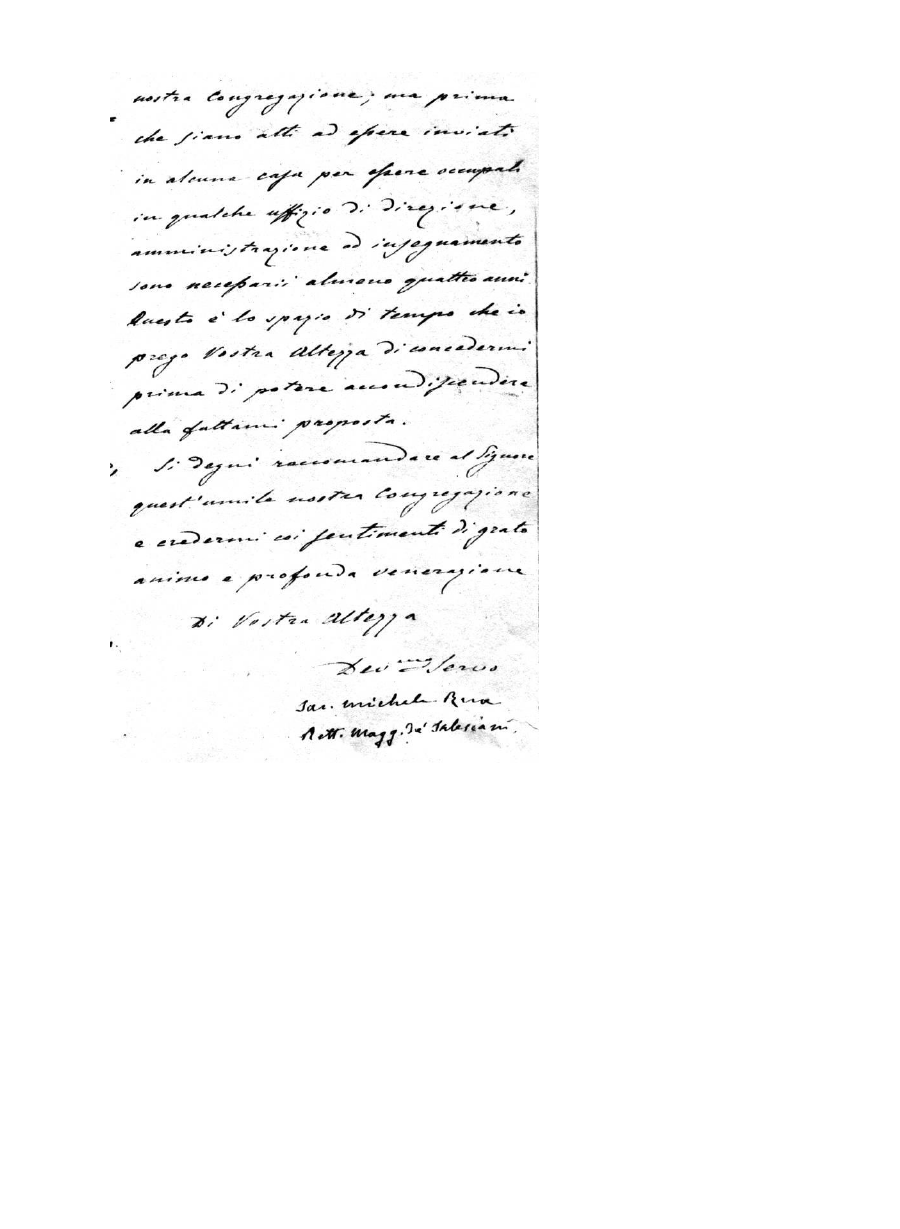 nostra Congregazione; ma prima
che siano atti ad essere inviati
in alcuna casa per essere occupati
in qualche uffizio di direzione,
amministrazione od insegnamento
sono necessarii almeno quattro anni.
Questo è lo spazio di tempo che io
prego Vostra Altezza di concedermi
prima di potere accondiscendere
alla fattami proposta.
Si degni raccomandare al Signore
quest'umile nostra Congregazione
e credermi coi sentimenti di grato
animo e profonda venerazione
Di Vostra Altezza
Dev.mo Servo
Sac. Michele Rua
Rett. Magg. de' Salesiani